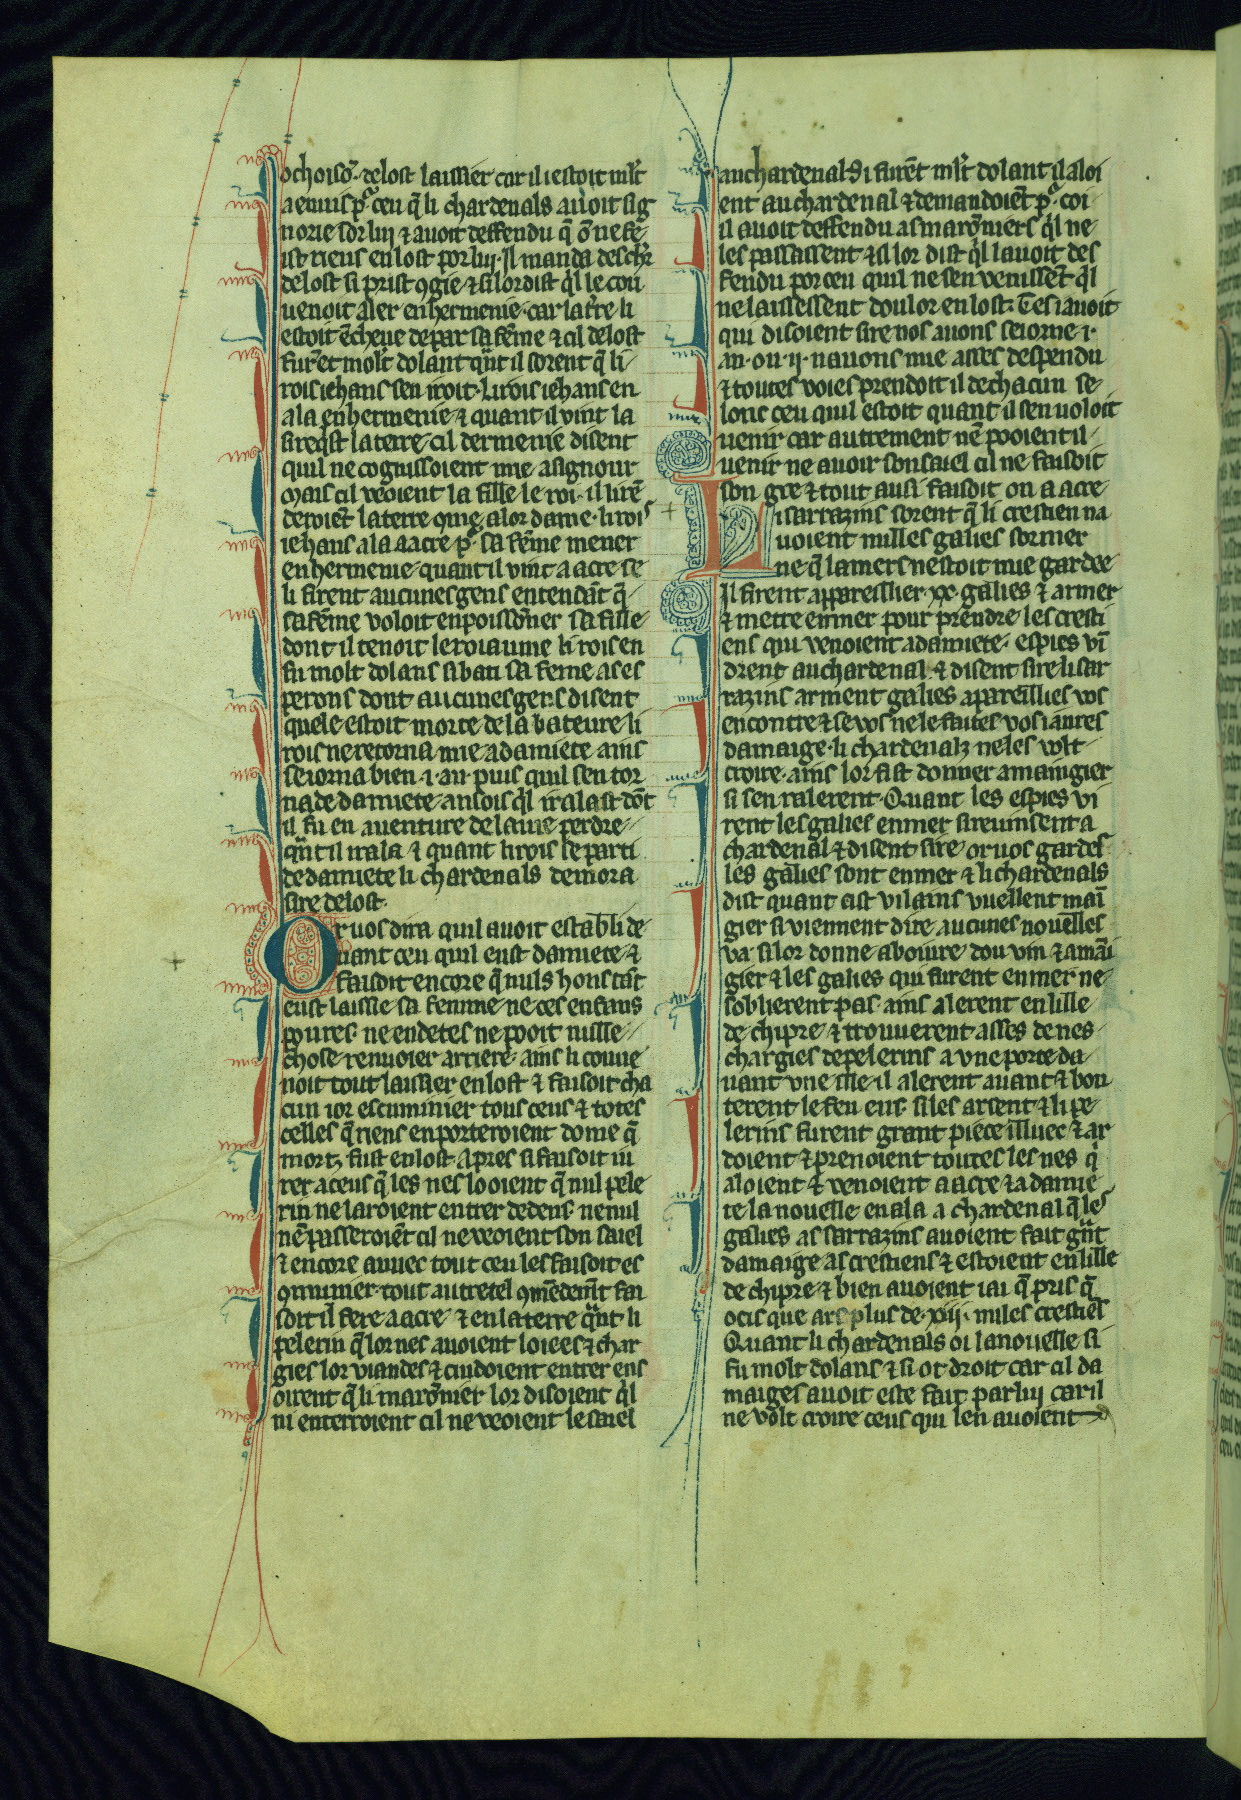 ochoisõ. delost laissier car il iestoit ml't
a enuis p̃ ceu q̃ li chardenals auoit sig
norie sor lui ⁊ auoit deffendu q̃ õ ne fe
ist riens en lost por lui. Il manda des chr̃
de lost si prist ꝯgie ⁊ si lor dist q̃l le cou
uenoit aler en hermenie. car la tr̃e li
estoit escheue de par sa feme ⁊ cil de lost
furẽt molt dolant q̃nt il sorent q̃ li
rois iehans sen iroit. Li rois iehans en
ala en hermenie ⁊ quant il vint la
si req̃st la terre. cil dermenie disent
quil ne cognissoient mie a signour
Mais cil veoient la fille le roi. il lirẽ
deroiẽt la terre come a lor dame. li rois
iehans ala a acre p̃ sa feme mener
en hermenie. quant il vint a acre se
li firent aucunes gens entendãt q̃
sa feme voloit enpoissoner sa fille
dont il tenoit le roiaume li rois en
fu molt dolans si bati sa feme as es
perons dont aucunes gens disent
quele estoit morte de la bateure li
rois ne retorna mie a damiete ains
seiorna bien .i. an. puis quil sen tor
na de damiete. ansois q̃l irala st dõt
il fu en auenture de la uie perdre
q̃nt il irala ⁊ quant li rois se parti
de damiete li chardenals demora
sire de lost.
Or uos dira quil auoit establi de
uant ceu quil eust damiete ⁊
faisoit encore q̃ nuls hons tãt
eust laissie sa femme ne ces enfans
poures ne endetes ne pooit nulle
chose renuoier arriere. ains li coue
noit tout laissier en lost ⁊ faisoit cha
cun ior escuminier tous ceus ⁊ totes
celles q̃ riens en porteroient dome q̃
mors fust en lost Apres si faisoit iu
rer a ceus q̃ les nes looient q̃ nul pele
rin ne lairoient entrer dedens ne nul
nẽ passeroiẽt cil ne veoient son saiel
⁊ encore auuec tout ceu les faisoit es
ꝯmunier. tout autretel ꝯmẽdemt̃ fai
soit il fere a acre ⁊ en la terre q̃nt li
pelerin q̃ lor nes auoient loiees ⁊ char
gies lor viandes ⁊ cuidoient entrer ens
oirent q̃ li maronier lor disoient q̃l
ni enterroient cil ne veoient le saiel
au chardenal. Si furẽt ml't dolant il aloi
ent au chardenal ⁊ demandoiẽt p̃ coi
il auoit deffendu as maroniers q̃l ne
les passassent ⁊ si lor dist q̃l lauoit des
fendu por ceu quil ne sen venissẽt q̃l
ne laissessent doulor en lost. Tes i auoit
qui disoient sire nos auons seiorne .i.
an. ou .ij. nauons mie asses despendu
⁊ toutes voies prendoit il de chacun se
lonc ceu quil estoit quant il sen uoloit
uenir car autrement nẽ pooient il
uenir ne auoir son saiel cil ne faisoit
son gre ⁊ tout ausi faisoit on a acre
Li sarrazins sorent q̃ li crestien na
uoient nulles galies sor mer
ne q̃ la mers nestoit mie gardee
Il firent appareillier .xx. galies ⁊ armer
⁊ metre en mer pour prendre les cresti
ens qui venoient a damiete. espies vĩ
drent au chardenal ⁊ disent sire li sar
razins arment galies apareillies vos
encontre ⁊ se vos ne le faites vos i aures
damaige. li chardenalz ne les volt
croire. ains lor fist donner a maingier
si sen ralerent. Quant les espies vi
rent les galies en mer si reuinsent a
chardenal ⁊ disent sire or uos gardes
les galies sont en mer ⁊ li chardenals
dist quant cist vilains vuellent maĩ
gier si viennent dire aucunes nouelles
va si lor donne a boiure dou vin ⁊ a maĩ
gier ⁊ les galies qui furent en mer ne
soblierent pas ains alerent en lille
de chipre ⁊ trouuerent asses de nes
chargies de pelerins a vne porte da
uant vne ille il alerent auant ⁊ bou
terent le feu ens. si les arsent ⁊ li pe
lerins furent grant piece illuec ⁊ ar
doient ⁊ prenoient toutes les nes q̃
aloient ⁊ venoient a acre ⁊ a damie
te la nouelle en ala a chardenal q̃ les
galies as sarrazins auoient fait g̃nt
damaige as crestiens ⁊ estoient en lille
de chipre ⁊ bien auoient iai q̃ pris q̃
ocis que ars plus de .xiij. miles crestiẽs
Quant li chardenals oi la nouelle si
fu molt dolans ⁊ si ot droit car cil da
maiges auoit este fait par lui car il
ne volt croire ceus qui len auoient